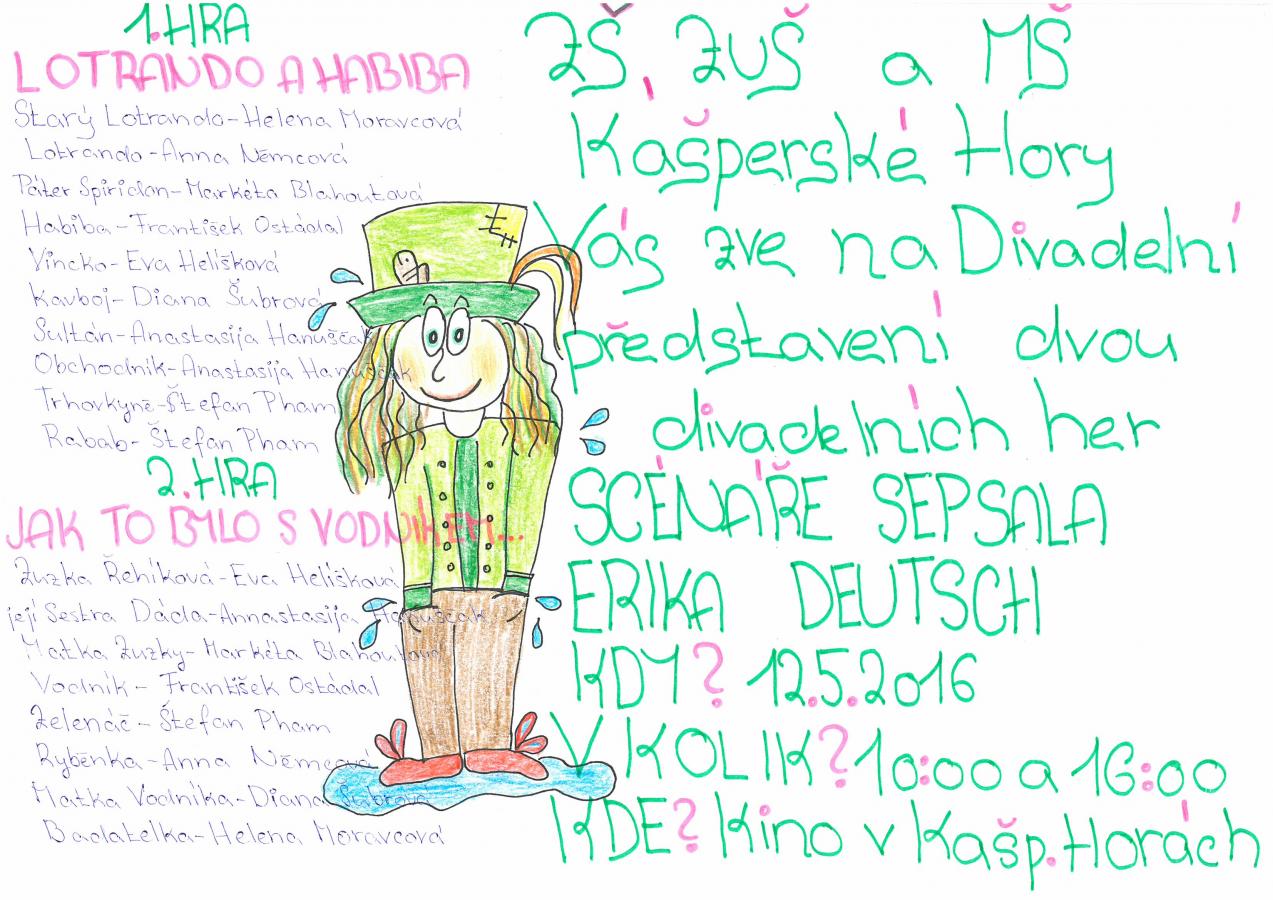 1. HRA
LOTRANDO A HABIBA
Starý Lotrando-Helena Moravcová
Lotrando-Anna Němcová
Páter Spiridon-Markéta Blahoutová
Habiba-František Ostádal
Vincko-Eva Helíšková
Kovboj-Diana Šubrová
Sultán-Anastasija Hanuščak
Obchodník-Anastasija Hanuščak
Trhovkyně-Štefan Pham
Rabab-Štefan Pham
2. HRA
JAK TO BYLO S VODNÍKEM...
Zuzka Řehíková-Eva Helíšková
její Sestra Dáda-Annastasija Hanuščak
Matka Zuzky-Markéta Blahoutová
Vodník-František Ostádal
Zelenáč-Štefan Pham
Ryběnka-Anna Němcová
Matka Vodníka-Diana Šubrová
Badatelka-Helena Moravcová
ZŠ, ZUŠ a MŠ
Kašperské Hory
Vás zve na Divadelní
představení dvou
divadelních her
SCÉNÁŘE SEPSALA
ERIKA DEUTSCH
KDY? 12.5.2016
V KOLIK? 10:00 a 16:00
KDE? Kino v Kašp. Horách